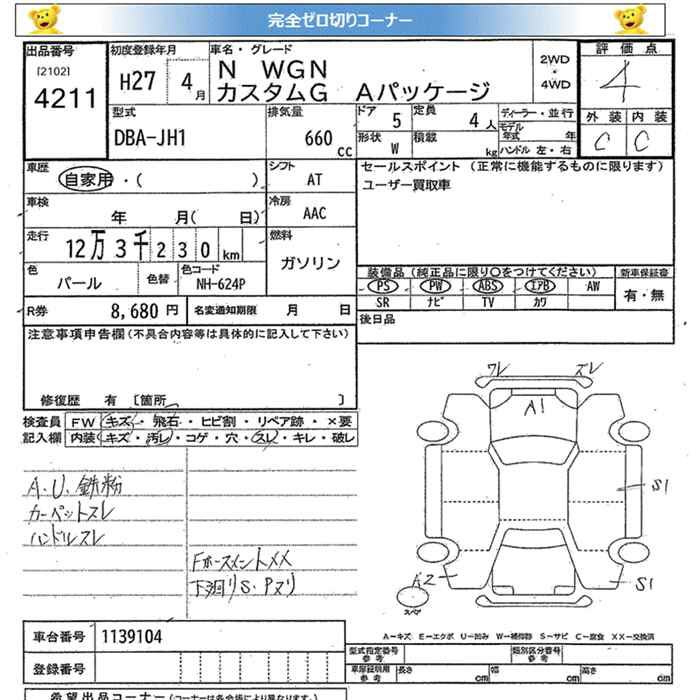 完全ゼロ切りコーナー
出品番号 初度登録年月 車名・グレード 2WD・4WD 評価点
[2102] 4211 H27 4月 N WGN 4
カスタムG Aパッケージ
型式 排気量 ドア 定員 ディーラー・並行 外装 内装
DBA-JH1 660cc 5 4人 モデル年式 年 C C
形状 W 積載 kg ハンドル 左・右
車歴 シフト セールスポイント (正常に機能するものに限ります)
自家用・( ) AT ユーザー買取車
車検 冷房
年 月( 日) AAC
走行 燃料
12万3千230km ガソリン
色 色替 色コード 装備品 (純正品に限り○をつけてください) 新車保証書
パール NH-624P PS PW ABS エアB AW 有・無
SR ナビ TV カワ
R券 8,680円 名変通知期限 月 日 後日品
注意事項申告欄 (不具合内容等は具体的に記入して下さい)
修復歴 有 [箇所 ]
検査員 FW キズ・飛石・ヒビ割・リペア跡・×要
記入欄 内装 キズ・汚レ・コゲ・穴・スレ・キレ・破レ
A.U.鉄粉
カーペットスレ
ハンドルスレ
Fホースメント××
下廻りS.Pヌリ
ワレ スレ
A1
S1
A2 S1
スペア
A-キズ E-エクボ U-凹み W-補修跡 S-サビ C-腐食 XX-交換済
車台番号 1139104 型式指定番号 参考 類別区分番号 参考
登録番号 車庫証明用 参考 長さ cm 幅 cm 高さ cm
希望出品コーナー (コーナーは各会場により異なります。)